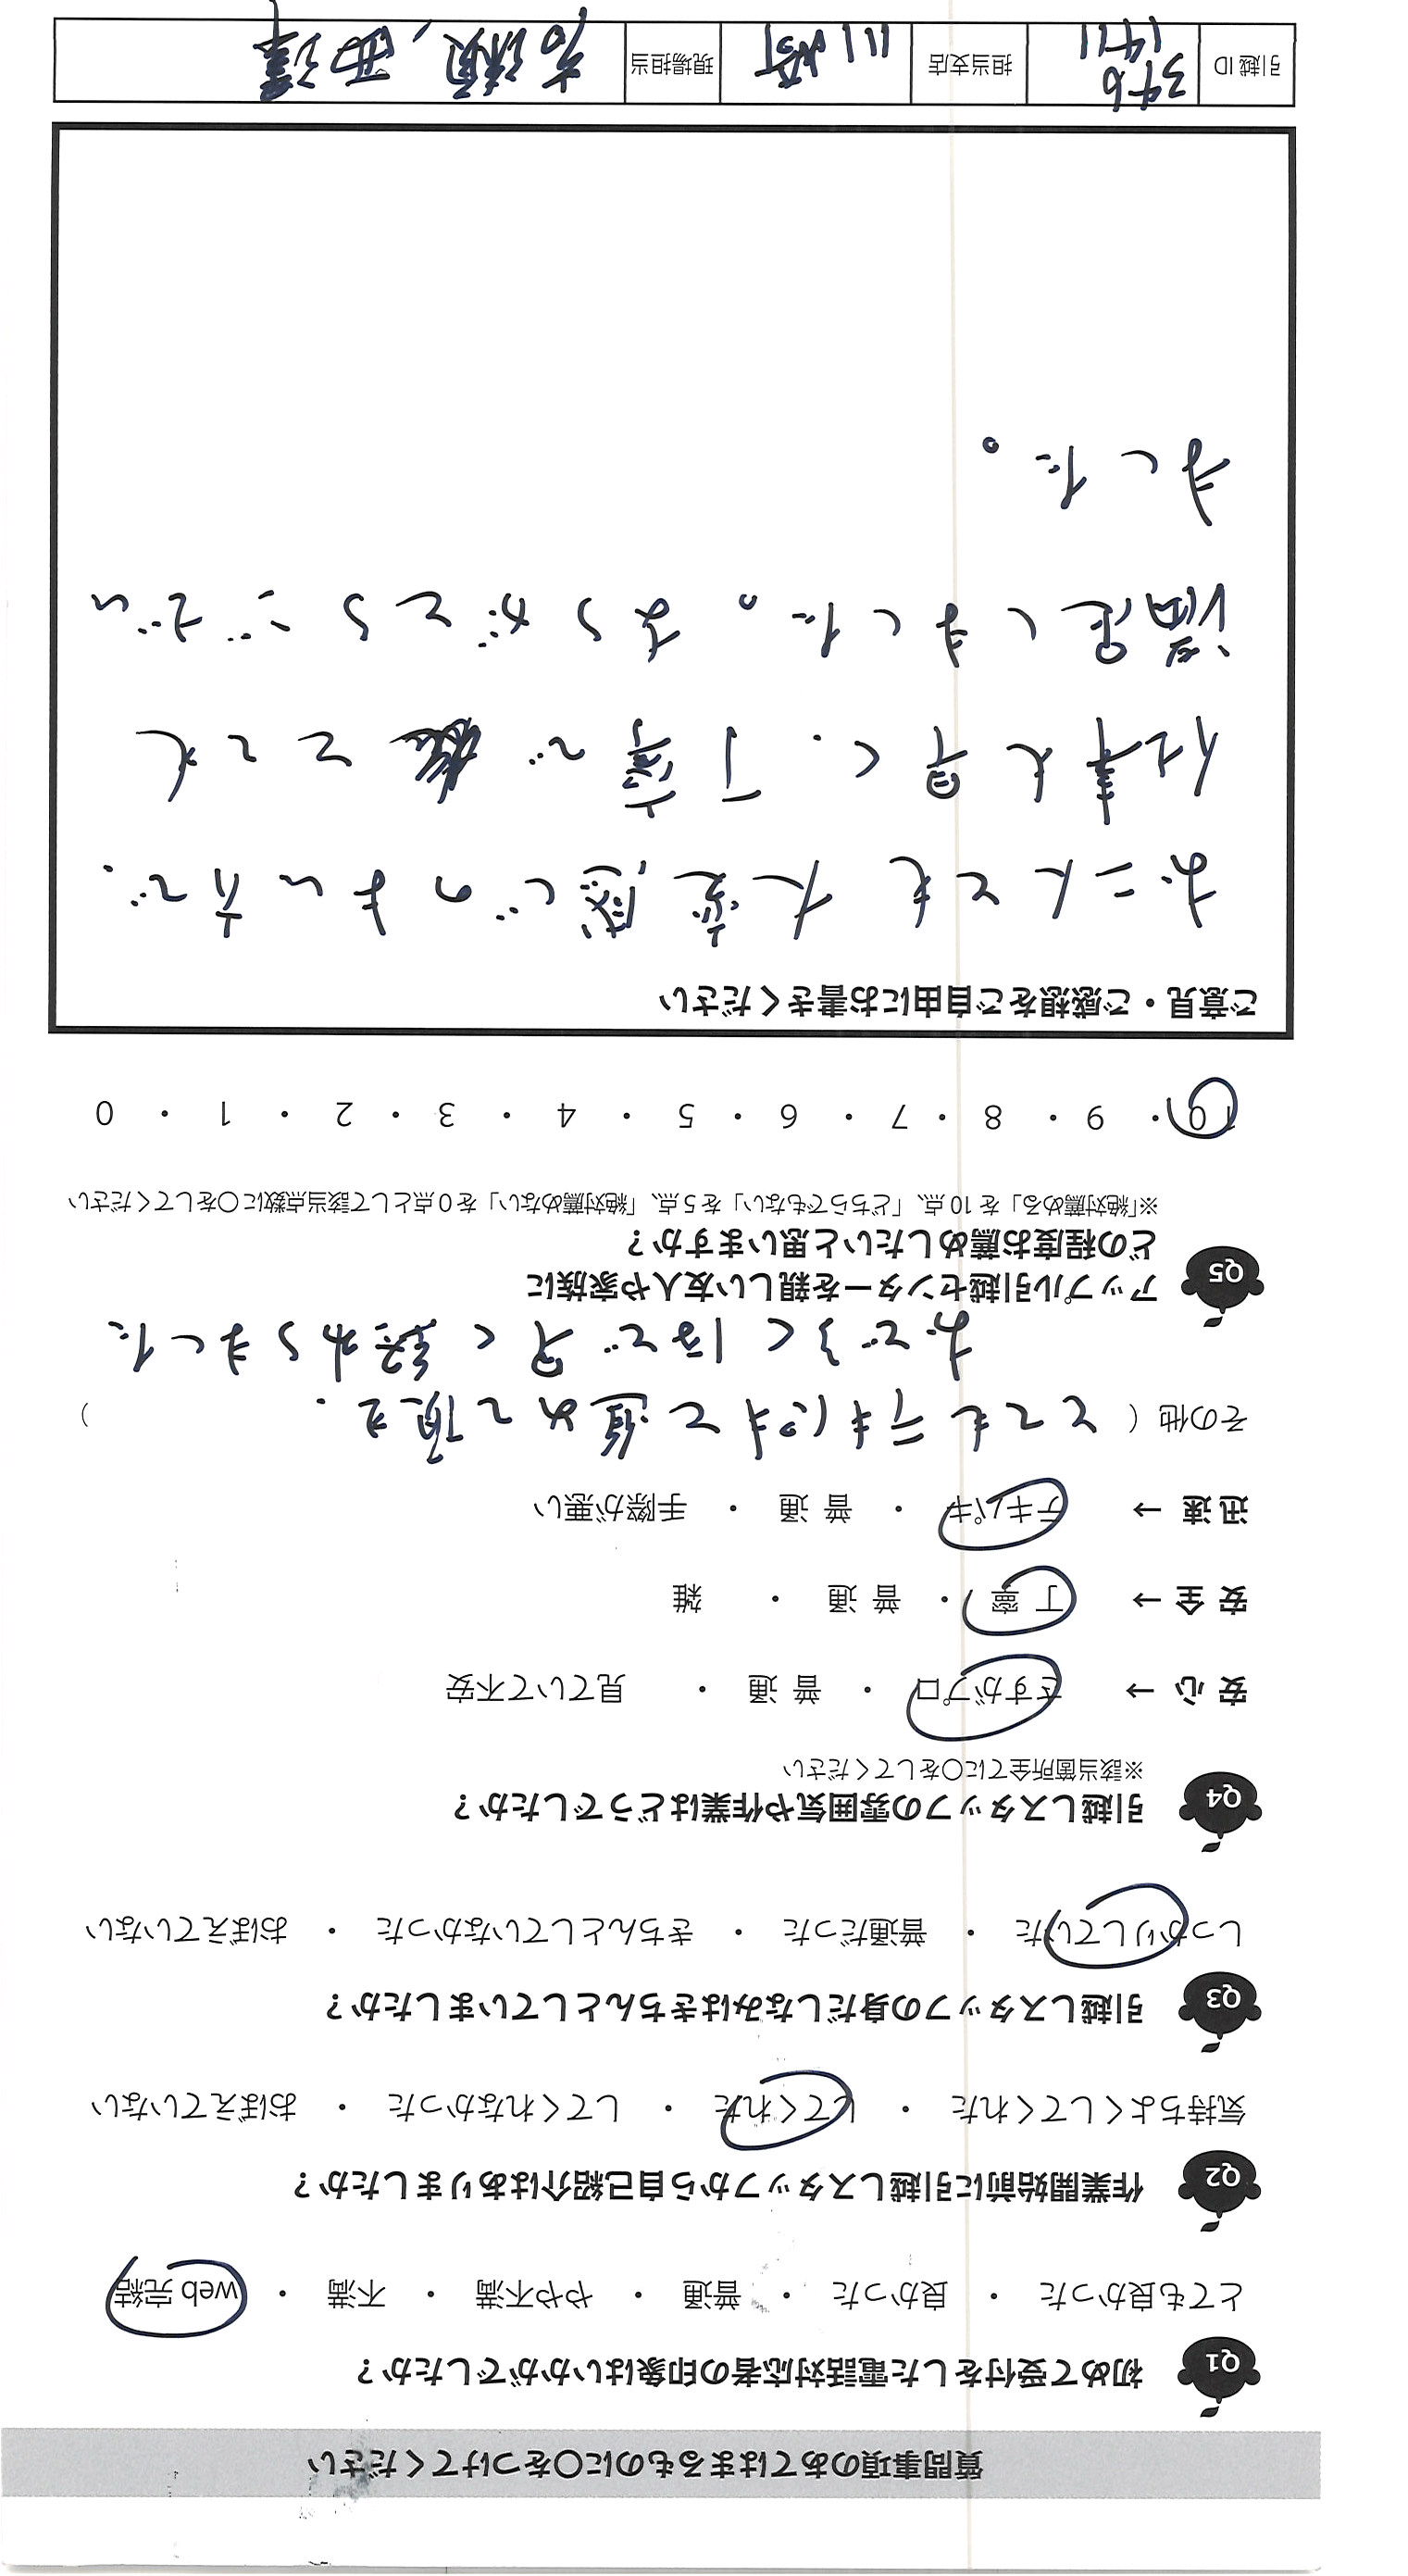 質問事項のあてはまるものに〇をつけてください
Q1 初めて受付をした電話対応者の印象はいかがでしたか？
とても良かった ・ 良かった ・ 普通 ・ やや不満 ・ 不満 ・ web 完結
Q2 作業開始前に引越しスタッフから自己紹介はありましたか？
気持ちよくしてくれた ・ してくれた ・ してくれなかった ・ おぼえていない
Q3 引越しスタッフの身だしなみはきちんとしていましたか？
しっかりしていた ・ 普通だった ・ きちんとしていなかった ・ おぼえていない
Q4 引越しスタッフの雰囲気や作業はどうでしたか？
※該当箇所全てに〇をしてください
安 心 → さすがプロ ・ 普 通 ・ 見ていて不安
安 全 → 丁 寧 ・ 普 通 ・ 雑
迅 速 → テキパキ ・ 普 通 ・ 手際が悪い
その他（ とてもテキパキと進めて頂き、 ）
おどろくほど早く終わりました
Q5 アップル引越センターを親しい友人や家族に
どの程度お薦めしたいと思いますか？
※「絶対薦める」を 10 点、「どちらでもない」を 5 点、「絶対薦めない」を 0 点として該当点数に〇をしてください
10 ・ 9 ・ 8 ・ 7 ・ 6 ・ 5 ・ 4 ・ 3 ・ 2 ・ 1 ・ 0
ご意見・ご感想をご自由にお書きください
お二人とも大変感じのよい方で、
仕事も早く、丁寧で とても
満足しました。ありがとうござい
ました。
引越 ID 396 1411 担当支店 川崎 現場担当 高瀬、西澤